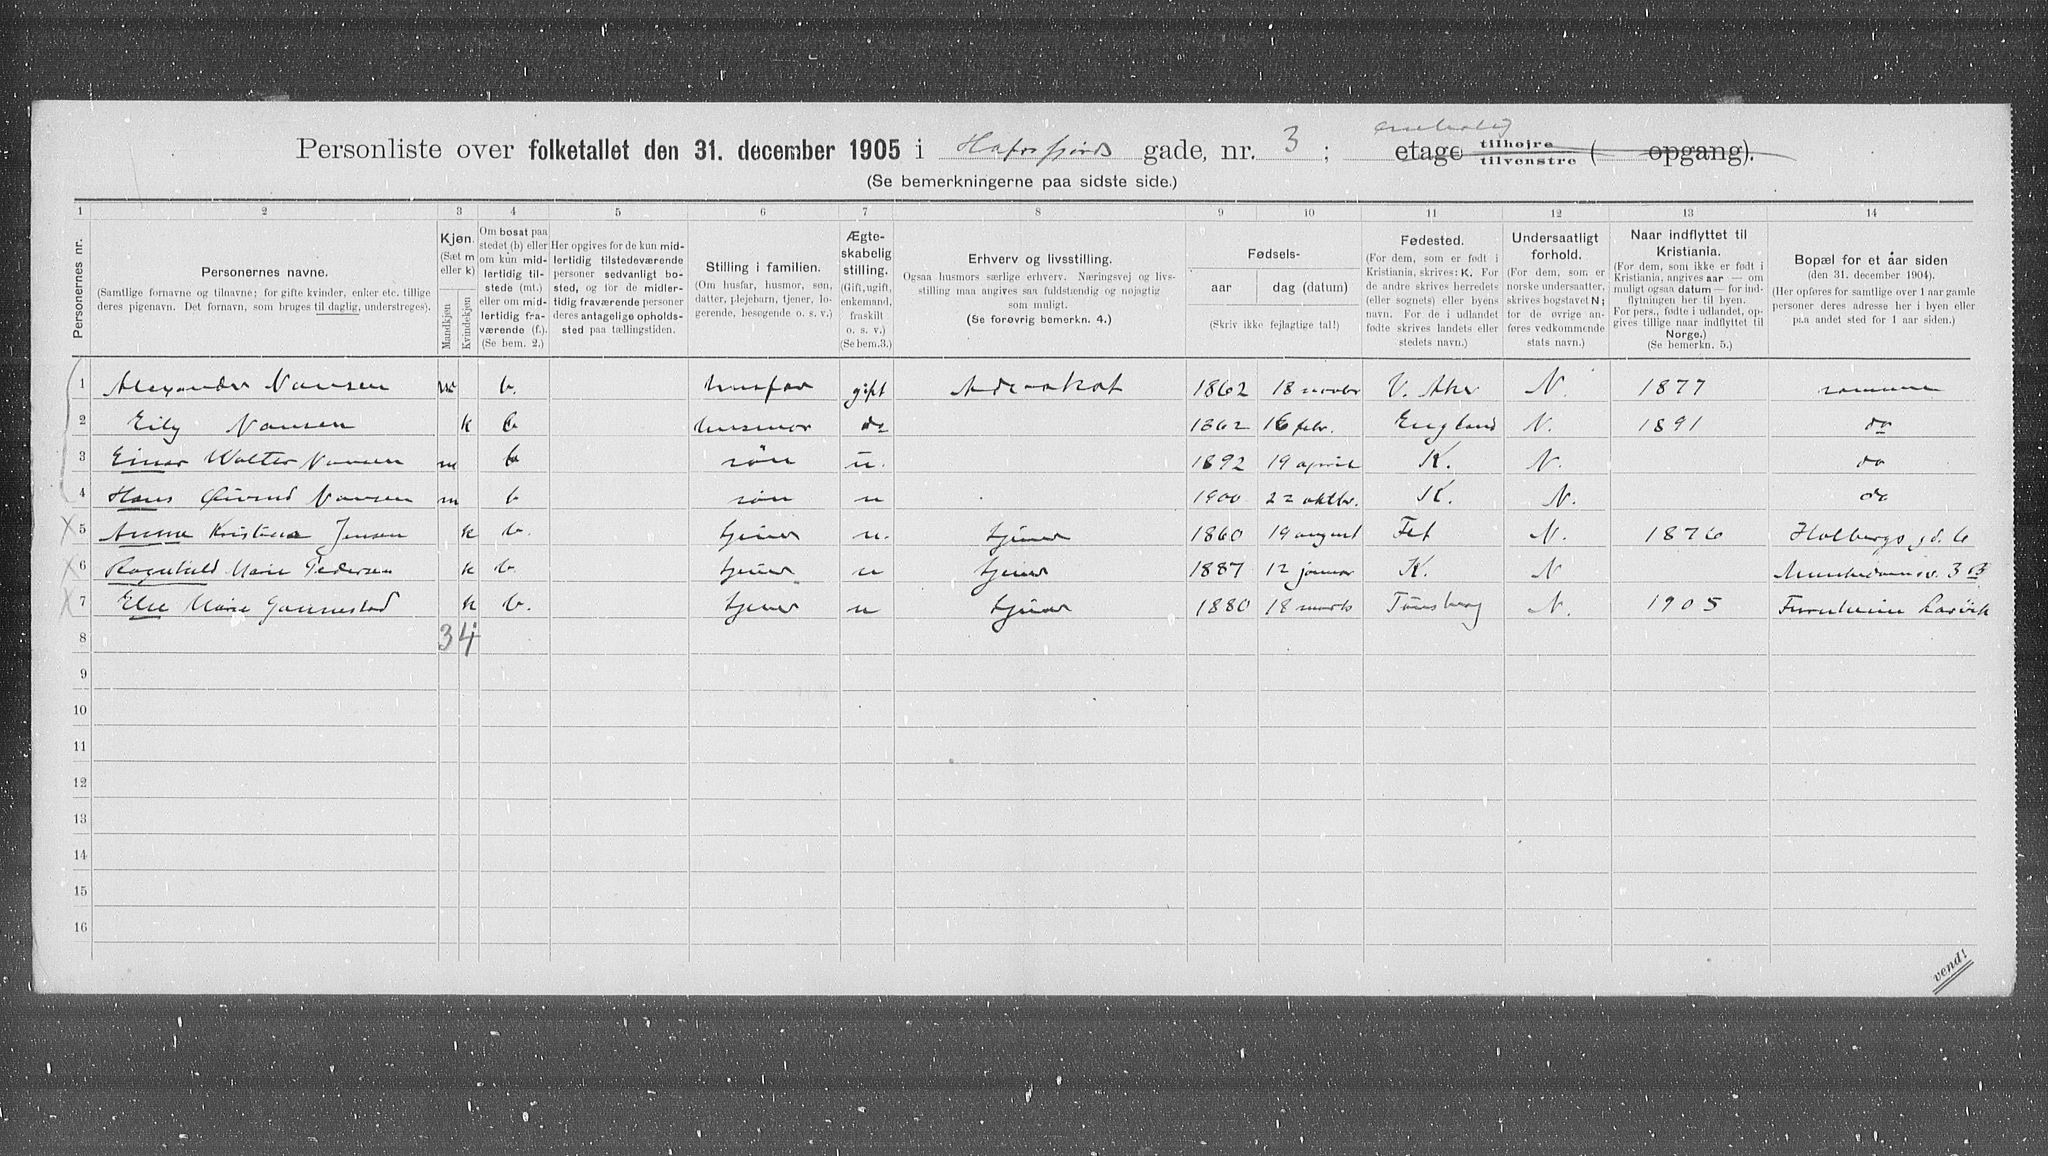 Personliste over folketallet den 31. december 1905 i Hafrsfjords gade, nr. 3; enebolig etage tilhøjre tilvenstre ( opgang).
(Se bemerkningerne paa sidste side.)
1 2 3 4 5 6 7 8 9 10 11 12 13 14
Personernes nr.
Personernes navne.
(Samtlige fornavne og tilnavne; for gifte kvinder, enker etc. tillige deres pigenavn. Det fornavn, som bruges til daglig, understreges).
Kjøn.
(Sæt m eller k)
Mandkjøn
Kvindekjøn
Om bosat paa stedet (b) eller om kun midlertidig tilstede (mt.) eller om midlertidig fraværende (f.).
(Se bem. 2.)
Her opgives for de kun midlertidig tilstedeværende personer sedvanligt bosted, og for de midlertidig fraværende personer deres antagelige opholdssted paa tællingstiden.
Stilling i familien.
(Om husfar, husmor, søn, datter, plejebarn, tjener, logerende, besøgende o. s. v.)
Ægteskabelig stilling.
(Gift, ugift, enkemand, fraskilt o. s. v.)
(Se bem.3.)
Erhverv og livsstilling.
Ogsaa husmors særlige erhverv. Næringsvej og livsstilling maa angives saa fuldstændig og nøjagtig som muligt.
(Se forøvrig bemerkn. 4.)
Fødsels-
aar dag (datum)
(Skriv ikke fejlagtige tal!)
Fødested.
(For dem, som er født i Kristiania, skrives: K. For de andre skrives herredets (eller sognets) eller byens navn. For de i udlandet fødte skrives landets eller stedets navn.)
Undersaatligt forhold.
(For dem, som er norske undersaatter, skrives bogstavet N; for de øvrige anføres vedkommende stats navn.)
Naar indflyttet til Kristiania.
(For dem, som ikke er født i Kristiania, angives aar — om muligt ogsaa datum — for indflytningen her til byen. For pers., fødte i udlandet, opgives tillige naar indflyttet til Norge.)
(Se bemerkn. 5.)
Bopæl for et aar siden
(den 31. december 1904).
(Her opføres for samtlige over 1 aar gamle personer deres adresse her i byen eller paa andet sted for 1 aar siden.)
1 Alexander Nansen m b. husfar gift Advokat 1862 18 novbr V. Aker N. 1877 samme
2 Eily Nansen k b husmor do 1862 16 febr. England N. 1891 do
3 Einar Walter Nansen m b søn u. 1892 19 april K. N. do
4 Hans Øivind Nansen m b søn u 1900 22 oktbr. K. N. do
5 Anna Kristina Jensen k b. tjener u. tjener 1860 19 august Fet N. 1876 Holbergs gd. 6
6 Ragnhild Marie Pedersen k b. tjener u tjener 1887 12 januar K. N Munkedamsv. 3 B
7 Else Marie Gannestad k b. tjener u tjener 1880 18 marts Tønsberg N. 1905 Furuheim Larvik
8 3 4
9
10
11
12
13
14
15
16
vend!